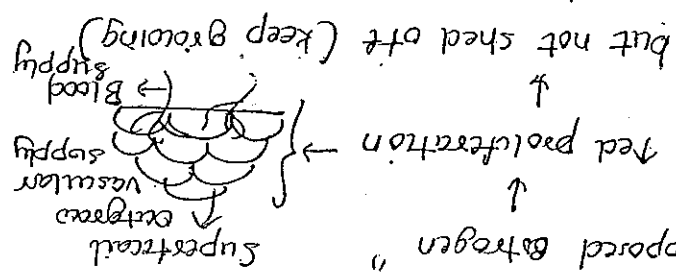 pposed estrogen "
↓
↑ed proliferation →
↓
but not shed off (keep growing)
Superficial
outgrow
vascular
supply
→ Blood
supply